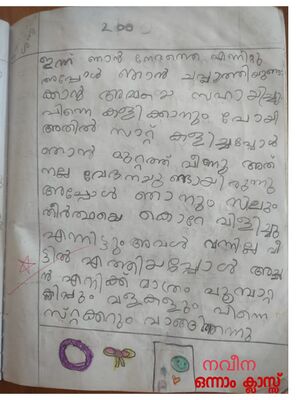 200
ഇന്ന് ഞാൻ നേരത്തെ എന്നീറ്റു
അപ്പോൾ ഞാൻ ചപ്പാത്തിയുണ്ടാ
ക്കാൻ അമ്മയെ സഹായിച്ചു
പിന്നെ കളിക്കാനും പോയി
അതിൽ സാറ്റ് കളിച്ചപ്പോൾ
ഞാൻ മുറ്റത്ത് വീണു അത്
നല്ല വേദനയുണ്ടായിരുന്നു
അപ്പോൾ ഞാനും
തീർത്ഥയെ കൊറേ വിളിച്ചു
എന്നിട്ടും അവൾ വന്നില്ല വീ
ട്ടിൽ എത്തിയപ്പോൾ അച്ഛ
ൻ എനിക്ക് മാത്രം പൂമ്പാറ്റ
ക്ലിപ്പും വളകളും പിന്നെ
സ്റ്റിക്കറും വാങ്ങിതന്നു
നവീന
ഒന്നാം ക്ലാസ്സ്